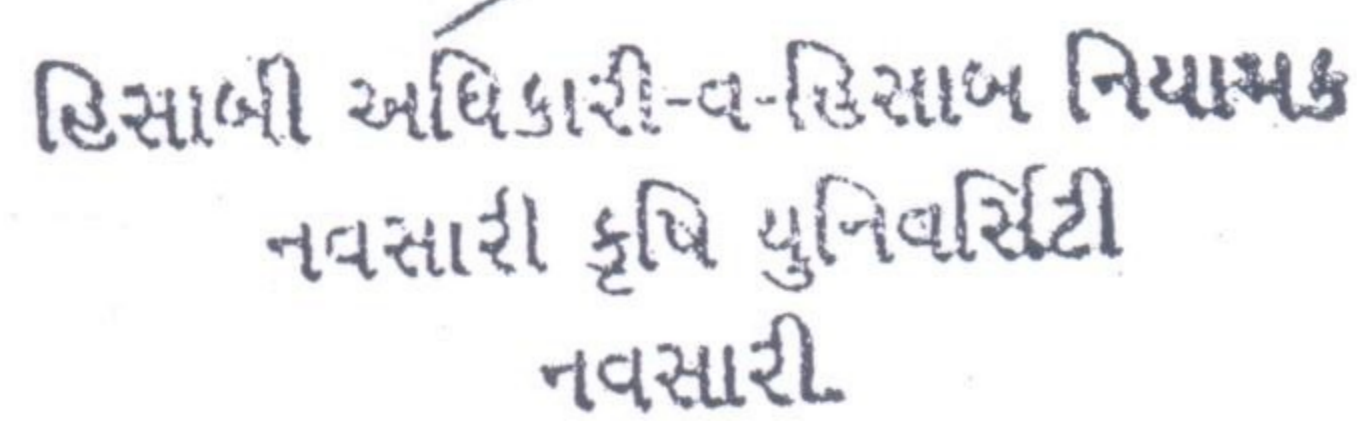 હિસાબી અધિકારી-વ-હિસાબ નિયામક
નવસારી કૃષિ યુનિવર્સિટી
નવસારી.